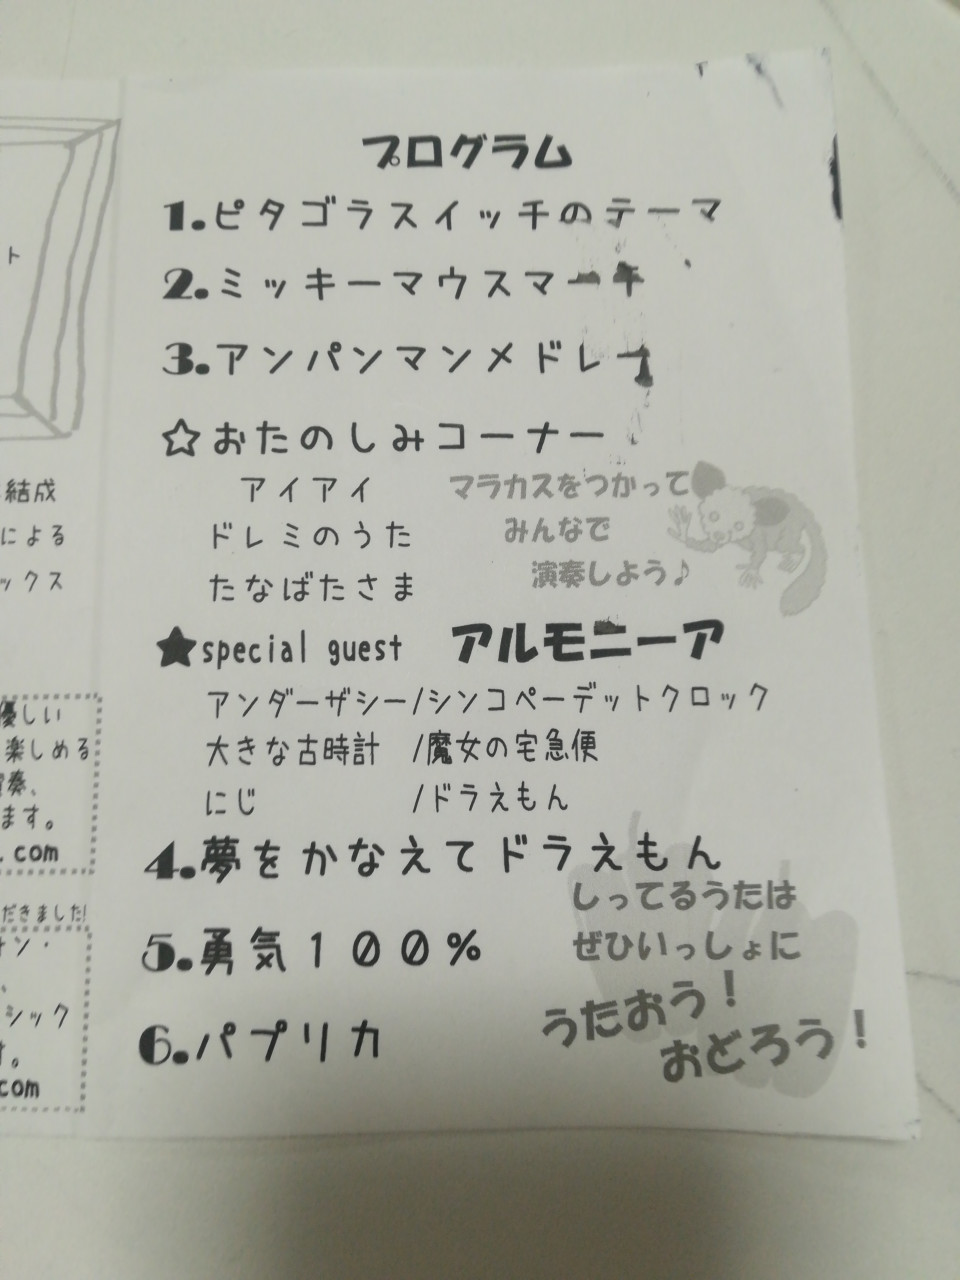 プログラム
1.ピタゴラスイッチのテーマ
2.ミッキーマウスマーチ
3.アンパンマンメドレー
☆おたのしみコーナー
アイアイ
ドレミのうた
たなばたさま
マラカスをつかって
みんなで
演奏しよう♪
★special guest アルモニーア
アンダーザシー/シンコペーデットクロック
大きな古時計 /魔女の宅急便
にじ /ドラえもん
4.夢をかなえてドラえもん
5.勇気100%
6.パプリカ
しってるうたは
ぜひいっしょに
うたおう!
おどろう!
ト
結成
による
ックス
優しい
楽しめる
奏、
ます。
.com
だきました!
ォン・
、
シック
す。
com